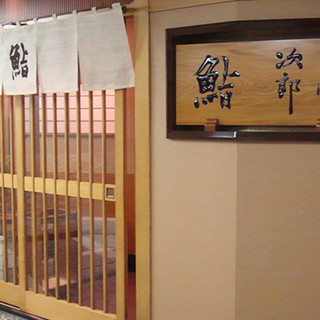 鮨
鮨 次郎